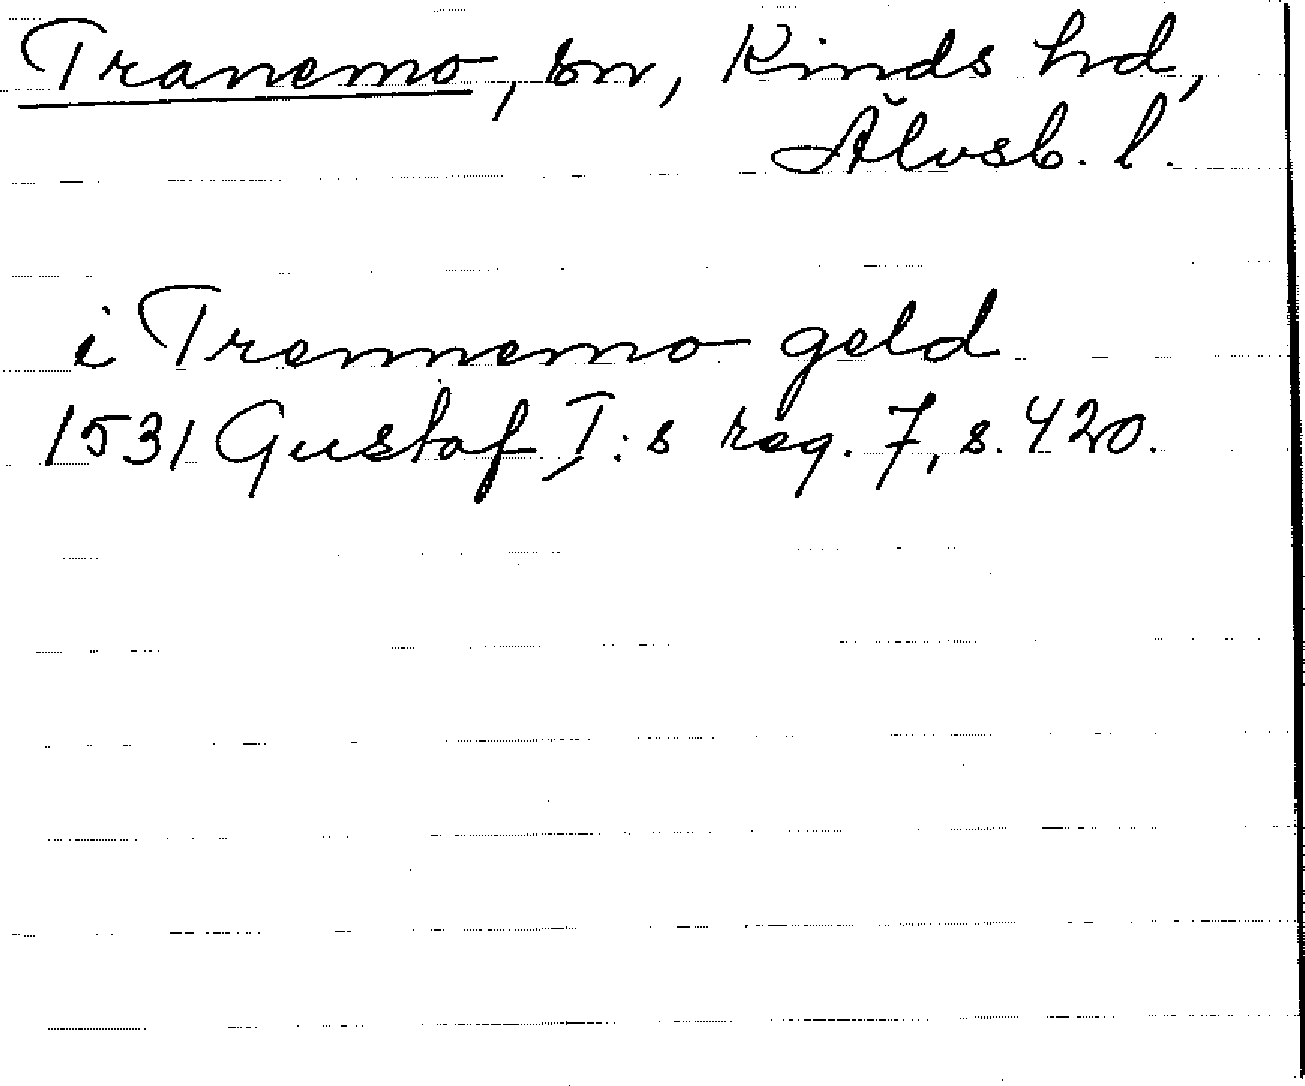 Tranemo, sn, Kinds hd,
Älvsb. l.
i Trennemo geld
1531 Gustaf I:s reg. 7, s. 420.